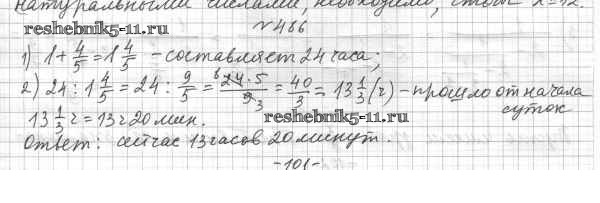 натуральными числами, необходимо, чтобы x=12.
reshebnik5-11.ru №486
1) 1+4/5=1 4/5 - составляет 24 часа;
2) 24 : 1 4/5 = 24 : 9/5 = 24·5/9 = 40/3 = 13 1/3 (ч) - прошло от начала
суток
13 1/3 ч = 13 ч 20 мин. reshebnik5-11.ru
Ответ: сейчас 13 часов 20 минут.
-101-